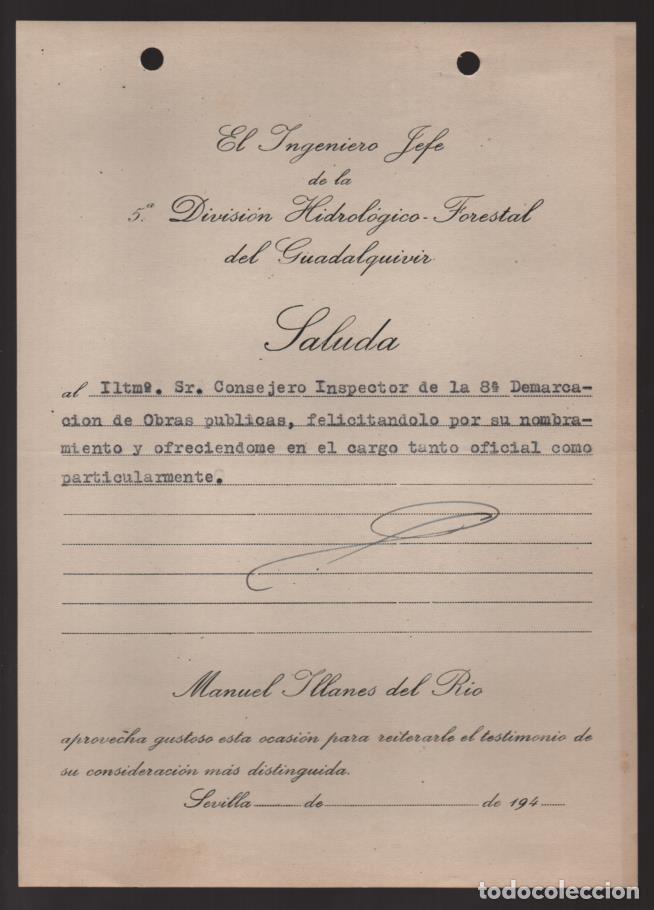 El Ingeniero Jefe
de la
5.ª División Hidrológico-Forestal
del Guadalquivir
Saluda
al Iltmº. Sr. Consejero Inspector de la 8ª Demarca-
cion de Obras publicas, felicitandolo por su nombra-
miento y ofreciendome en el cargo tanto oficial como
particularmente.
Manuel Illanes del Rio
aprovecha gustoso esta ocasión para reiterarle el testimonio de
su consideración más distinguida.
Sevilla de de 194
todocoleccion